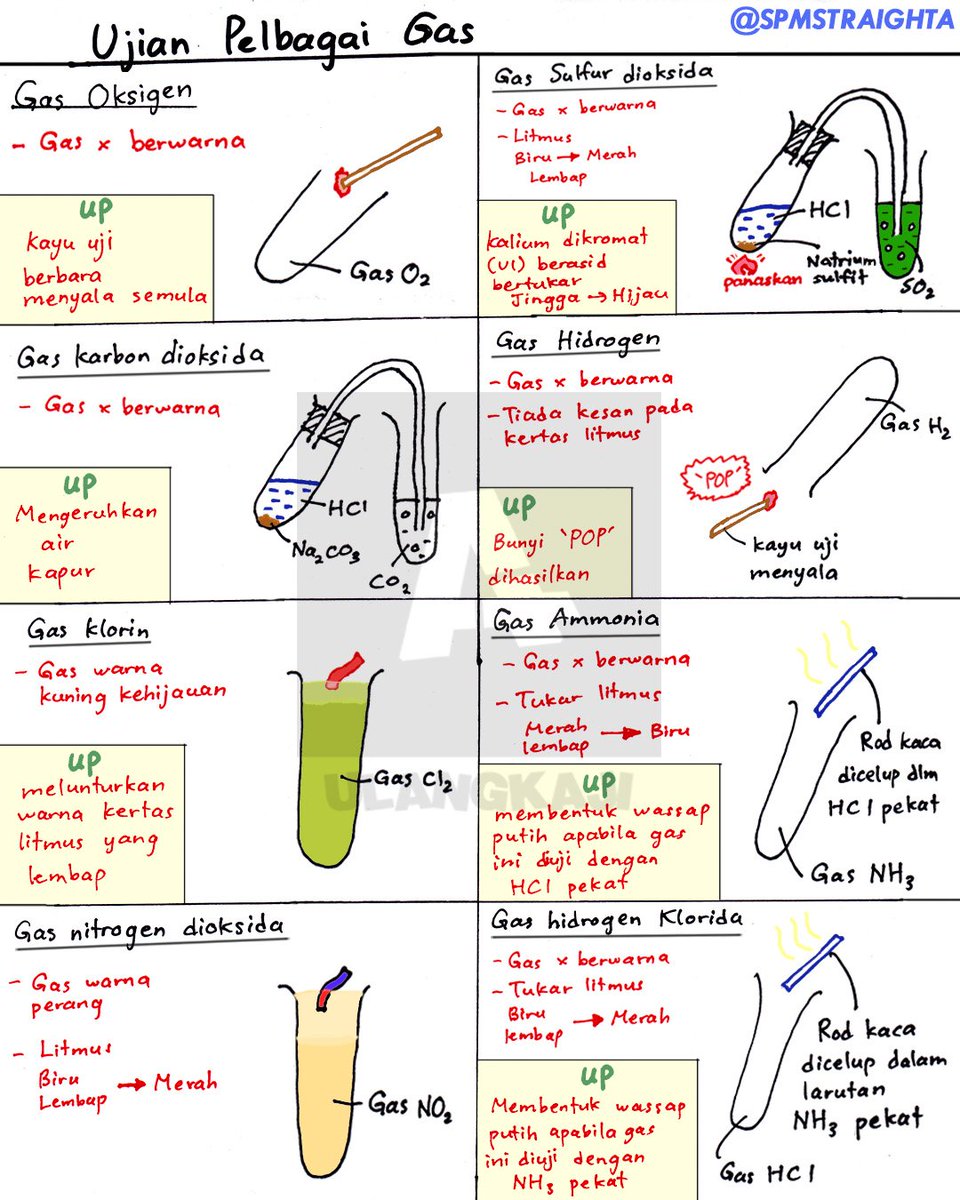 @SPMSTRAIGHTA
Ujian Pelbagai Gas
Gas Oksigen
- Gas x berwarna
UP
kayu uji
berbara
menyala semula
Gas O₂
Gas Sulfur dioksida
- Gas x berwarna
- Litmus
Biru → Merah
Lembap
UP
kalium dikromat
(VI) berasid
bertukar
Jingga → Hijau
HCl
Natrium
sulfit
panaskan
SO₂
Gas karbon dioksida
- Gas x berwarna
UP
Mengeruhkan
air
kapur
HCl
Na₂CO₃
CO₂
Gas Hidrogen
- Gas x berwarna
- Tiada kesan pada
kertas litmus
UP
Bunyi 'POP'
dihasilkan
Gas H₂
'POP'
kayu uji
menyala
Gas klorin
- Gas warna
kuning kehijauan
UP
melunturkan
warna kertas
litmus yang
lembap
Gas Cl₂
Gas Ammonia
- Gas x berwarna
- Tukar litmus
Merah → Biru
lembap
UP
membentuk wassap
putih apabila gas
ini diuji dengan
HCl pekat
Rod kaca
dicelup dlm
HCl pekat
Gas NH₃
ULANGKAJI
Gas nitrogen dioksida
- Gas warna
perang
- Litmus
Biru → Merah
Lembap
Gas NO₂
Gas hidrogen Klorida
- Gas x berwarna
- Tukar litmus
Biru → Merah
lembap
UP
Membentuk wassap
putih apabila gas
ini diuji dengan
NH₃ pekat
Rod kaca
dicelup dalam
larutan
NH₃ pekat
Gas HCl